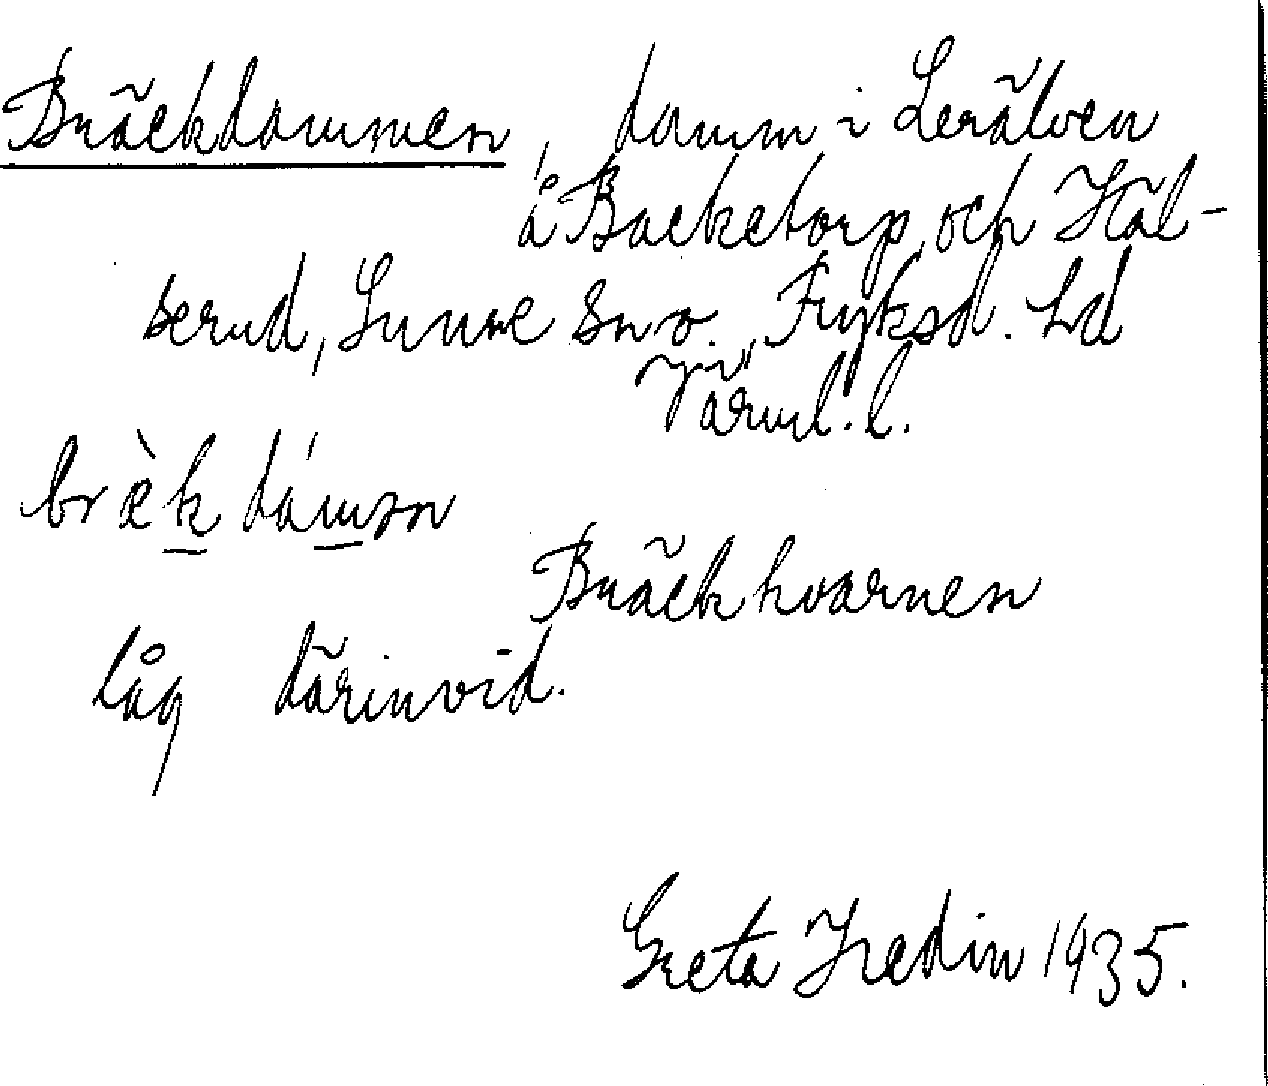 Bräckdammen, damm i Lerälven
å Backetorp och Häl-
serud, Sunne sn o. Fryksd. hd
Värml. l.
bræ̀kdámən
Bräckkvarnen
låg därinvid.
Greta Hedin 1935.